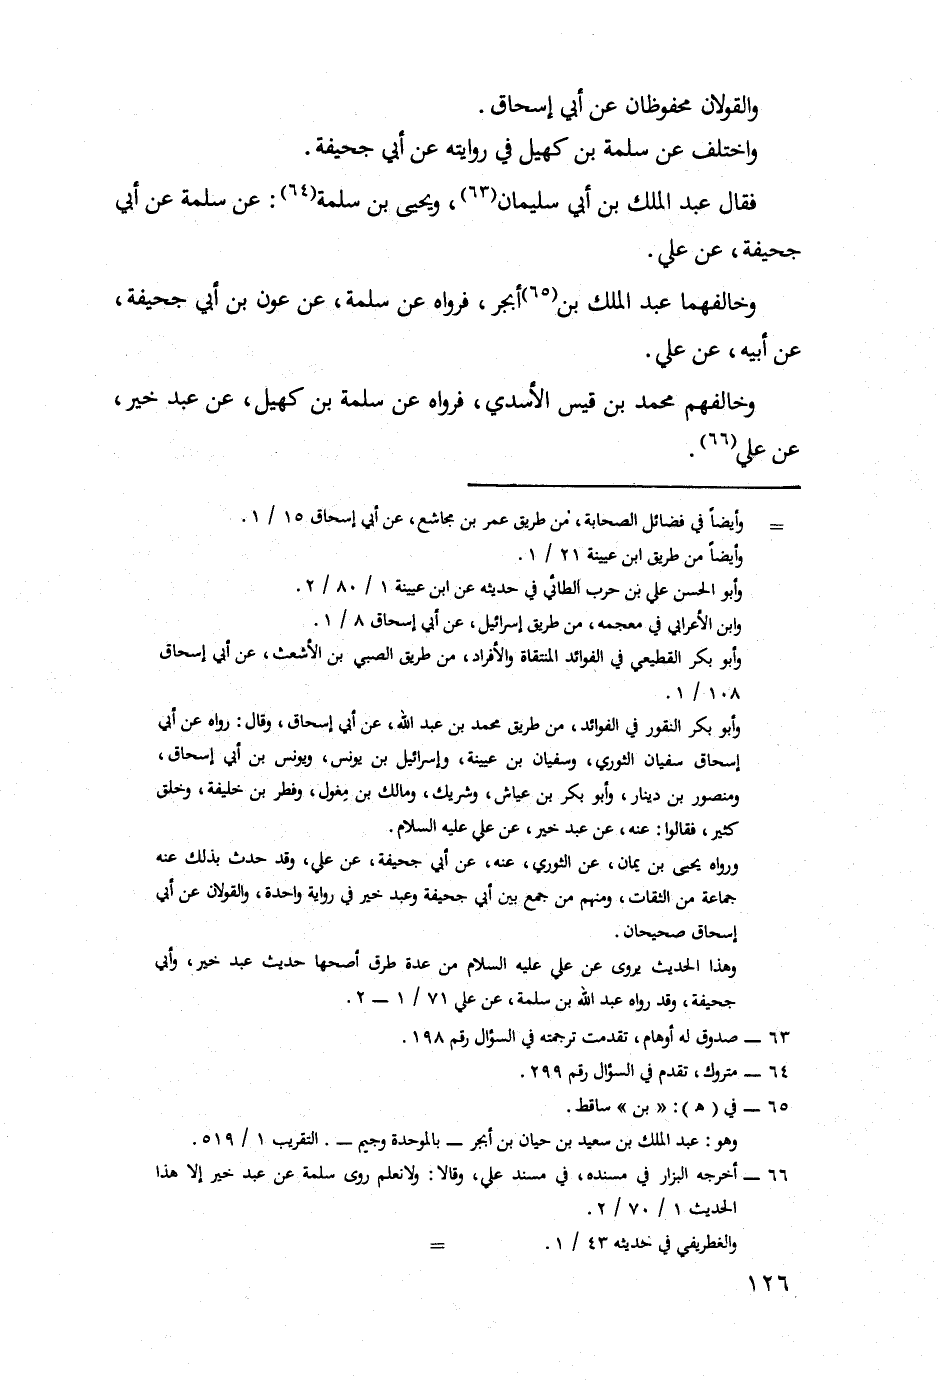 والقولان محفوظان عن أبي إسحاق .
واختلف عن سلمة بن كهيل في روايته عن أبي جحيفة .
فقال عبد الملك بن أبي سليمان(٦٣) ، ويحيى بن سلمة(٦٤) : عن سلمة عن أبي
جحيفة ، عن علي .
وخالفهما عبد الملك بن(٦٥)أبجر ، فرواه عن سلمة ، عن عون بن أبي جحيفة ،
عن أبيه ، عن علي .
وخالفهم محمد بن قيس الأسدي ، فرواه عن سلمة بن كهيل ، عن عبد خير ،
عن علي(٦٦) .
= وأيضاً في فضائل الصحابة ، من طريق عمر بن مجاشع ، عن أبي إسحاق ١٥ / ١ .
وأيضاً من طريق ابن عيينة ٢١ / ١ .
وأبو الحسن علي بن حرب الطائي في حديثه عن ابن عيينة ١ / ٨٠ / ٢ .
وابن الأعرابي في معجمه ، من طريق إسرائيل ، عن أبي إسحاق ٨ / ١ .
وأبو بكر القطيعي في الفوائد المنتقاة والأفراد ، من طريق الصبي بن الأشعث ، عن أبي إسحاق
١٠٨ / ١ .
وأبو بكر النقور في الفوائد ، من طريق محمد بن عبد الله ، عن أبي إسحاق ، وقال : رواه عن أبي
إسحاق سفيان الثوري ، وسفيان بن عيينة ، وإسرائيل بن يونس ، ويونس بن أبي إسحاق ،
ومنصور بن دينار ، وأبو بكر بن عياش ، وشريك ، ومالك بن مِغول ، وفطر بن خليفة ، وخلق
كثير ، فقالوا : عنه ، عن عبد خير ، عن علي عليه السلام .
ورواه يحيى بن يمان ، عن الثوري ، عنه ، عن أبي جحيفة ، عن علي ، وقد حدث بذلك عنه
جماعة من الثقات ، ومنهم من جمع بين أبي جحيفة وعبد خير في رواية واحدة ، والقولان عن أبي
إسحاق صحيحان .
وهذا الحديث يروى عن علي عليه السلام من عدة طرق أصحها حديث عبد خير ، وأبي
جحيفة ، وقد رواه عبد الله بن سلمة ، عن علي ٧١ / ١ — ٢ .
٦٣ — صدوق له أوهام ، تقدمت ترجمته في السؤال رقم ١٩٨ .
٦٤ — متروك ، تقدم في السؤال رقم ٢٩٩ .
٦٥ — في ( هـ ) : « بن » ساقط .
وهو : عبد الملك بن سعيد بن حيان بن أبجر — بالموحدة وجيم — . التقريب ١ / ٥١٩ .
٦٦ — أخرجه البزار في مسنده ، في مسند علي ، وقالا : ولانعلم روى سلمة عن عبد خير إلا هذا
الحديث ١ / ٧٠ / ٢ .
والغطريفي في حديثه ٤٣ / ١ . =
١٢٦